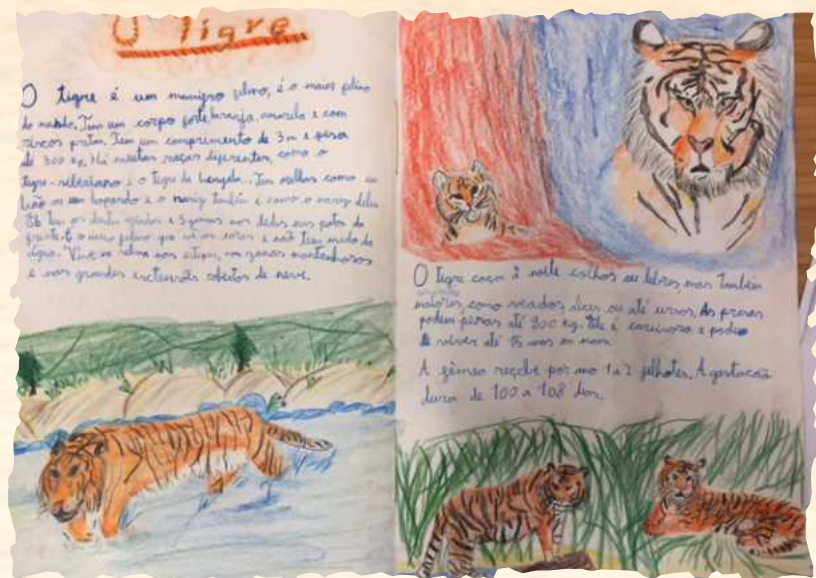 O Tigre
O tigre é um felino, é o maior felino
do mundo. Tem um corpo forte laranja, amarelo e com
riscos pretos. Tem um comprimento de 3 m e pesa
até 300 kg. Há muitas raças diferentes, como o
tigre-siberiano e o tigre de bengala. Tem orelhas como um
leão ou um leopardo e o nariz também é como o nariz deles
Ele tem os dentes e 5 garras nos dedos nas patas da
frente. É o único felino que vê as cores e não tem medo da
água. Vive na selva nos nas zonas montanhosas
e nas grandes cobertas de neve.
O tigre caça à noite coelhos ou lebres, mas também
maiores, como veados, ou até ursos. As presas
podem pesar até 900 kg. Ele é carnívoro e pode
viver até 15 anos ou mais.
A fêmea recebe por ano 1 a 2 filhotes. A gestação
dura de 100 a 108 dias.